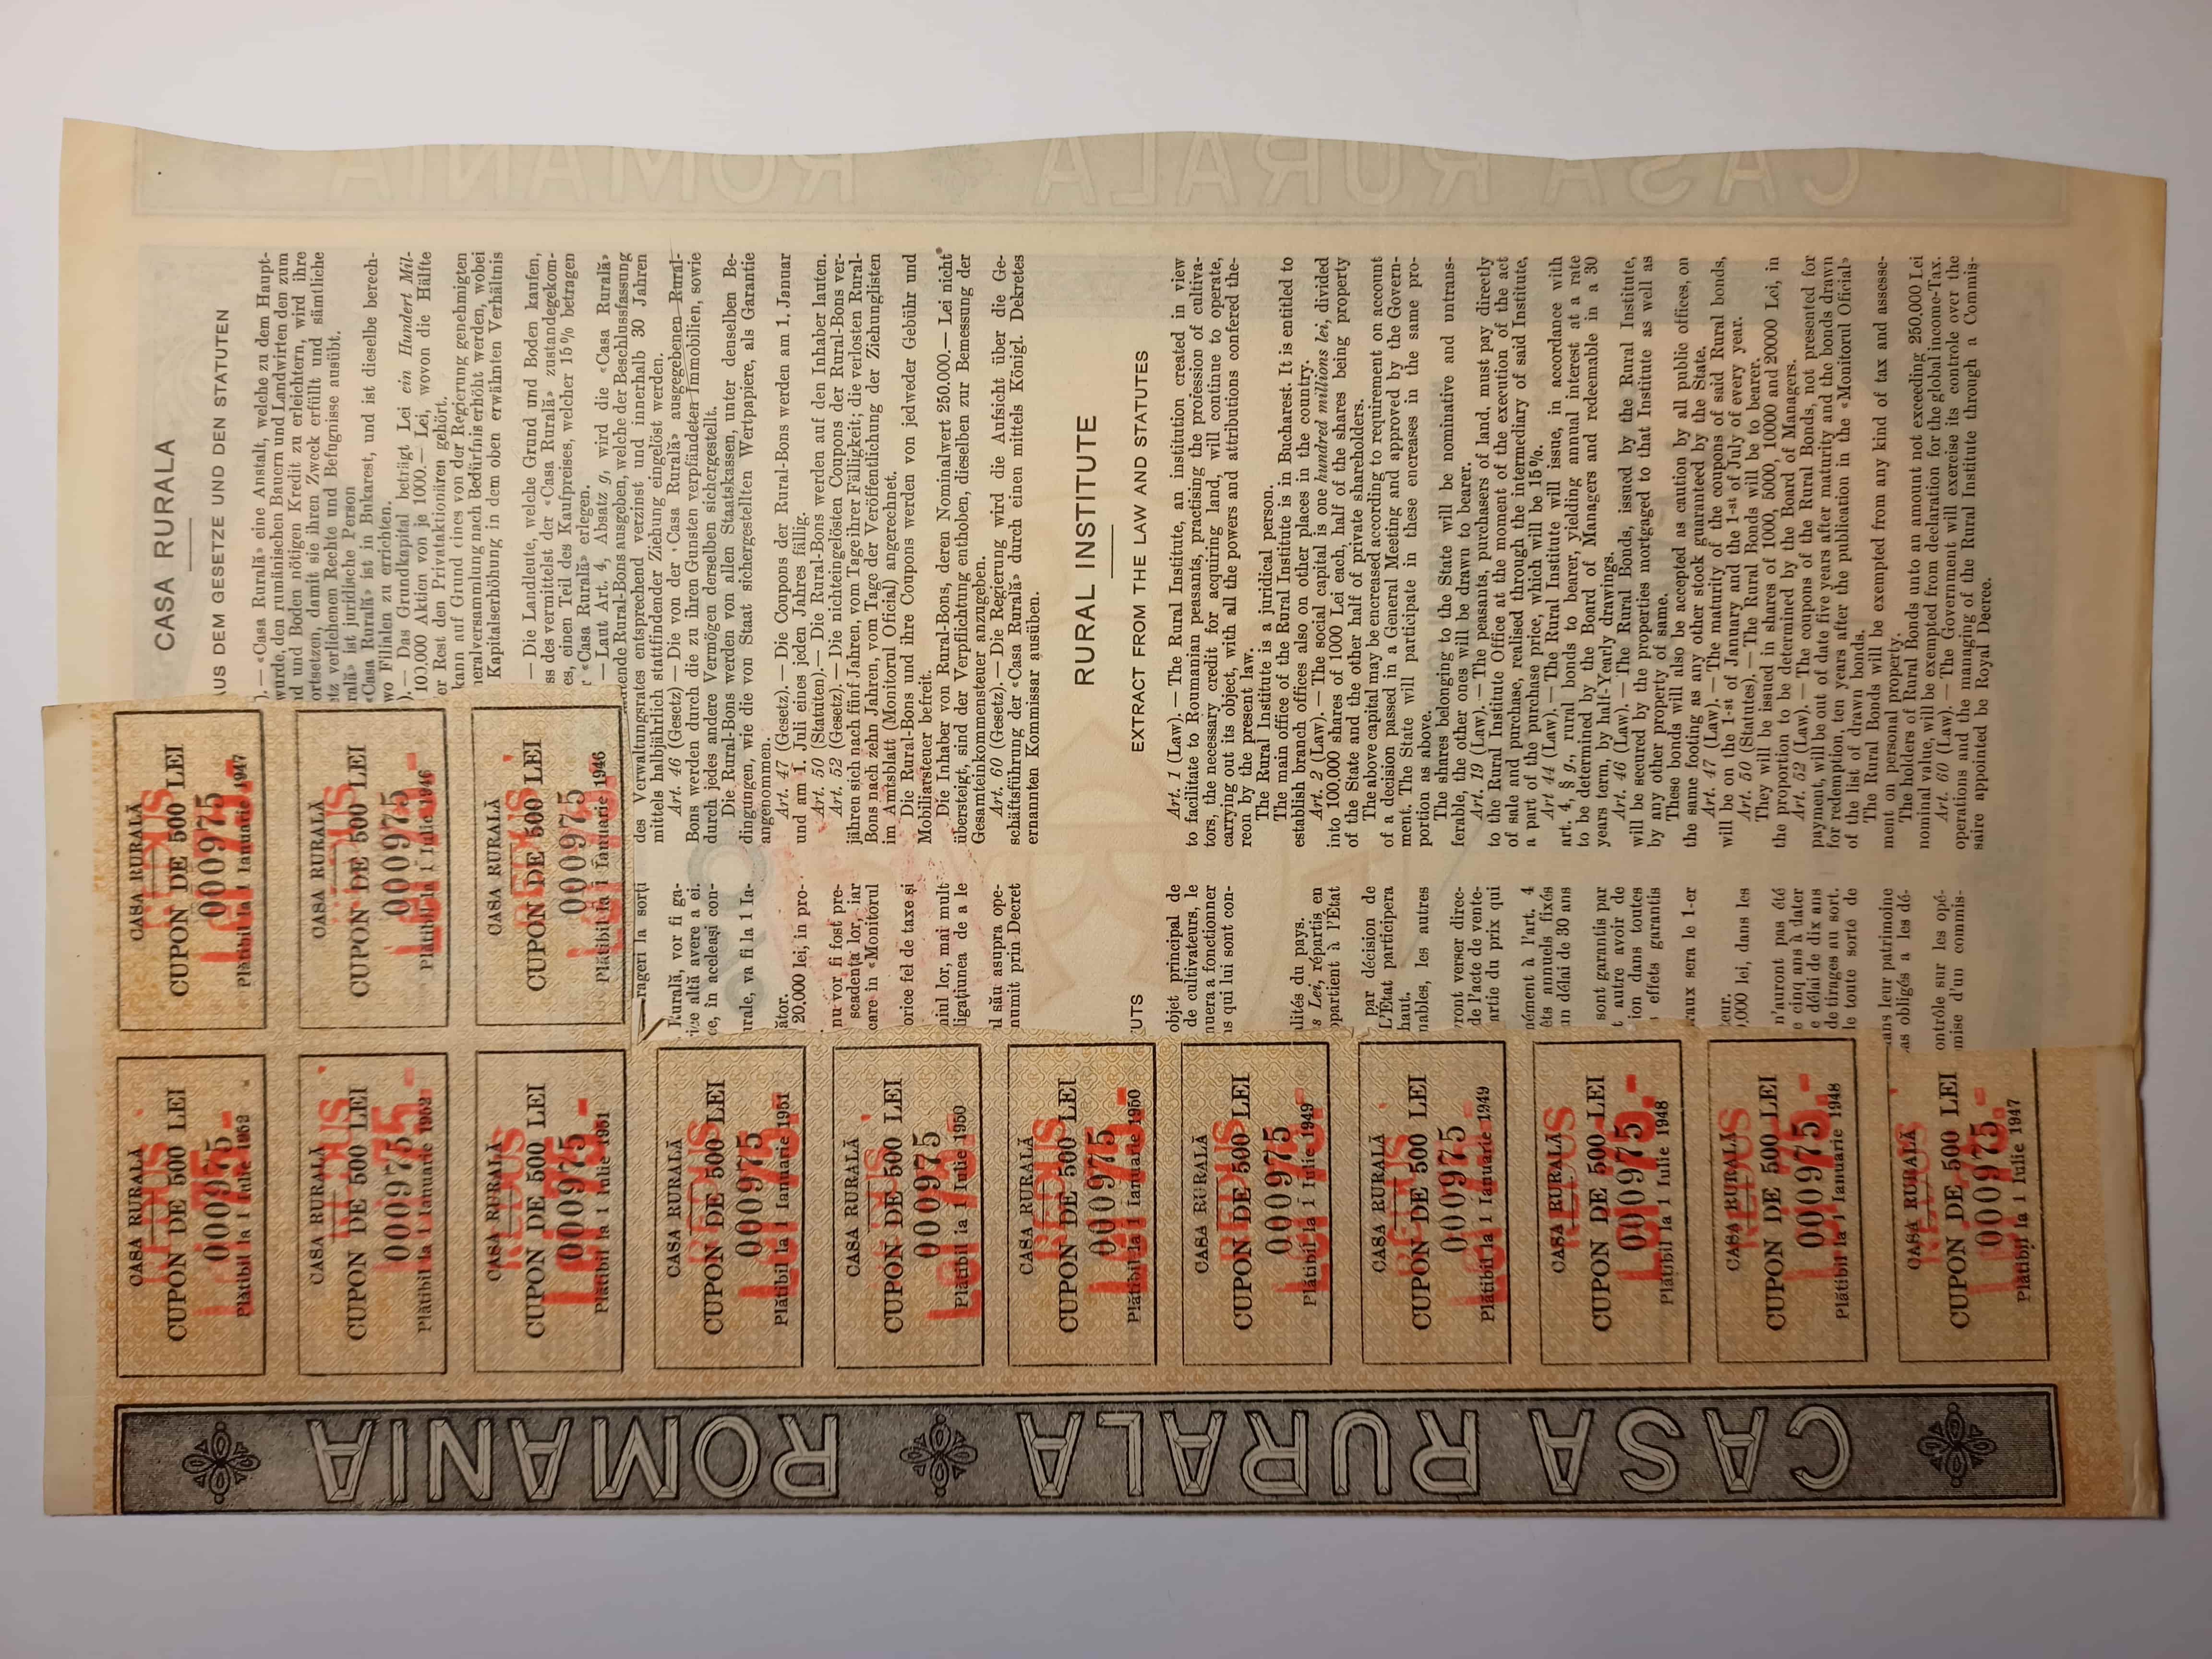 CASA RURALA ROMANIA
CASA RURALĂ
CUPON DE 500 LEI
000975
Plătibil la 1 Iulie 1952
REDUS
Lei 75.-
CASA RURALĂ
CUPON DE 500 LEI
000975
Plătibil la 1 Ianuarie 1952
REDUS
Lei 75.-
CASA RURALĂ
CUPON DE 500 LEI
000975
Plătibil la 1 Iulie 1951
REDUS
Lei 75.-
CASA RURALĂ
CUPON DE 500 LEI
000975
Plătibil la 1 Ianuarie 1951
REDUS
Lei 75.-
CASA RURALĂ
CUPON DE 500 LEI
000975
Plătibil la 1 Iulie 1950
REDUS
Lei 75.-
CASA RURALĂ
CUPON DE 500 LEI
000975
Plătibil la 1 Ianuarie 1950
REDUS
Lei 75.-
CASA RURALĂ
CUPON DE 500 LEI
000975
Plătibil la 1 Iulie 1949
REDUS
Lei 75.-
CASA RURALĂ
CUPON DE 500 LEI
000975
Plătibil la 1 Ianuarie 1949
REDUS
Lei 75.-
CASA RURALĂ
CUPON DE 500 LEI
000975
Plătibil la 1 Iulie 1948
REDUS
Lei 75.-
CASA RURALĂ
CUPON DE 500 LEI
000975
Plătibil la 1 Ianuarie 1948
REDUS
Lei 75.-
CASA RURALĂ
CUPON DE 500 LEI
000975
Plătibil la 1 Iulie 1947
REDUS
Lei 75.-
CASA RURALĂ
CUPON DE 500 LEI
000975
Plătibil la 1 Ianuarie 1947
REDUS
Lei 75.-
CASA RURALĂ
CUPON DE 500 LEI
000975
Plătibil la 1 Iulie 1946
REDUS
Lei 75.-
CASA RURALĂ
CUPON DE 500 LEI
000975
Plătibil la 1 Ianuarie 1946
REDUS
Lei 75.-
rageri la sorți
Rurală, vor fi ga-
ice altă avere a ei.
ce, în aceleași con-
urale, va fi la 1 Ia-
ător.
20,000 lei, in pro-
nu vor fi fost pre-
scadența lor, iar
care in «Monitorul
orice fel de taxe și
niul lor, mai mult
ligațiunea de a le
l său asupra ope-
numit prin Decret
UTS
objet principal de
de cultivateurs, le
nuera a fonctionner
s qui lui sont con-
lités du pays.
s Lei, répartis en
ppartient à l'État
par décision de
L'État participera
haut.
nables, les autres
ront verser direc-
de l'acte de vente-
artie du prix qui
nément à l'art. 4
êts annuels fixés
un délai de 30 ans
sont garantis par
t autre avoir de
ion dans toutes
effets garantis
raux sera le 1-er
teur.
0,000 lei, dans les
n'auront pas été
e cinq ans à dater
e délai de dix ans
de tirages au sort.
le toute sorte de
ans leur patrimoine
as obligés a les dé-
ontrôle sur les opé-
mise d'un commis-
CASA RURALA
AUS DEM GESETZE UND DEN STATUTEN
). — «Casa Rurală» eine Anstalt, welche zu dem Haupt-
wurde, den rumänischen Bauern und Landwirten den zum
d und Boden nötigen Kredit zu erleichtern, wird ihre
ortsetzen, damit sie ihren Zweck erfüllt und sämtliche
tz verlichenen Rechte und Befugnisse ausübt.
rală» ist juridische Person
«Casa Rurală» ist in Bukarest, und ist dieselbe berech-
wo Filialen zu errichten.
). — Das Grundkapital beträgt Lei ein Hundert Mil-
10.000 Aktien von je 1000.— Lei, wovon die Hälfte
er Rest den Privataktionären gehört.
kann auf Grund eines von der Regierung genehmigten
neralversammlung nach Bedürfnis erhöht werden, wobei
Kapitalserhöhung in dem oben erwähnten Verhältnis
— Die Landleute, welche Grund und Boden kaufen,
ss des vermittels der «Casa Rurală» zustandegekom-
es, einen Teil des Kaufpreises, welcher 15 % betragen
r «Casa Rurală» erlegen.
— Laut Art. 4, Absatz g, wird die «Casa Rurală»
tende Rural-Bons ausgeben, welche der Beschlussfassung
des Verwaltungsrates entsprechend verzinst und innerhalb 30 Jahren
mittels halbjährlich stattfindender Ziehung eingelöst werden.
Art. 46 (Gesetz) — Die von der «Casa Rurală» ausgegebenen Rural-
Bons werden durch die zu ihren Gunsten verpfändeten Immobilien, sowie
durch jedes andere Vermögen derselben sichergestellt.
Die Rural-Bons werden von allen Staatskassen, unter denselben Be-
dingungen, wie die von Staat sichergestellten Wertpapiere, als Garantie
angenommen.
Art. 47 (Gesetz). — Die Coupons der Rural-Bons werden am 1. Januar
und am 1. Juli eines jeden Jahres fällig.
Art. 50 (Statuten). — Die Rural-Bons werden auf den Inhaber lauten.
Art. 52 (Gesetz). — Die nichteingelösten Coupons der Rural-Bons ver-
jähren sich nach fünf Jahren, vom Tage ihrer Fälligkeit; die verlosten Rural-
Bons nach zehn Jahren, vom Tage der Veröffentlichung der Ziehunglisten
im Amtsblatt (Monitorul Oficial) angerechnet.
Die Rural-Bons und ihre Coupons werden von jedweder Gebühr und
Mobiliarsteuer befreit.
Die Inhaber von Rural-Bons, deren Nominalwert 250.000.— Lei nicht
übersteigt, sind der Verpflichtung enthoben, dieselben zur Bemessung der
Gesamteinkommensteuer anzugeben.
Art. 60 (Gesetz). — Die Regierung wird die Aufsicht über die Ge-
schäftsführung der «Casa Rurală» durch einen mittels Königl. Dekretes
ernannten Kommissar ausüben.
RURAL INSTITUTE
EXTRACT FROM THE LAW AND STATUTES
Art. 1 (Law). — The Rural Institute, an institution created in view
to facilitate to Roumanian peasants, practising the profession of cultiva-
tors, the necessary credit for acquiring land, will continue to operate,
carrying out its object, with all the powers and attributions confered the-
reon by the present law.
The Rural Institute is a juridical person.
The main office of the Rural Institute is in Bucharest. It is entitled to
establish branch offices also on other places in the country.
Art. 2 (Law). — The social capital is one hundred millions lei, divided
into 100,000 shares of 1000 Lei each, half of the shares being property
of the State and the other half of private shareholders.
The above capital may be encreased according to requirement on account
of a decision passed in a General Meeting and approved by the Govern-
ment. The State will participate in these encreases in the same pro-
portion as above.
The shares belonging to the State will be nominative and untrans-
ferable, the other ones will be drawn to bearer.
Art. 19 (Law). — The peasants, purchasers of land, must pay directly
to the Rural Institute Office at the moment of the execution of the act
of sale and purchase, realised through the intermediary of said Institute,
a part of the purchase price, which will be 15 %.
Art 44 (Law). — The Rural Institute will issue, in accordance with
art. 4, § g., rural bonds to bearer, yielding annual interest at a rate
to be determined by the Board of Managers and redeemable in a 30
years term, by half-Yearly drawings.
Art. 46 (Law). — The Rural Bonds, issued by the Rural Institute,
will be secured by the properties mortgaged to that Institute as well as
by any other property of same.
These bonds will also be accepted as caution by all public offices, on
the same footing as any other stock guaranteed by the State.
Art. 47 (Law). — The maturity of the coupons of said Rural bonds,
will be on the 1-st of January and the 1-st of July of every year.
Art. 50 (Statutes). — The Rural Bonds will be to bearer.
They will be issued in shares of 1000, 5000, 10000 and 20000 Lei, in
the proportion to be determined by the Board of Managers.
Art. 52 (Law). — The coupons of the Rural Bonds, not presented for
payment, will be out of date five years after maturity and the bonds drawn
for redemption, ten years after the publication in the «Monitorul Oficial»
of the list of drawn bonds.
The Rural Bonds will be exempted from any kind of tax and assesse-
ment on personal property.
The holders of Rural Bonds unto an amount not exceeding 250,000 Lei
nominal value, will be exempted from declaration for the global income-Tax.
Art. 60 (Law). — The Government will exercise its controle over the
operations and the managing of the Rural Institute through a Commis-
saire appointed be Royal Decree.
CASA RURALA ROMANIA